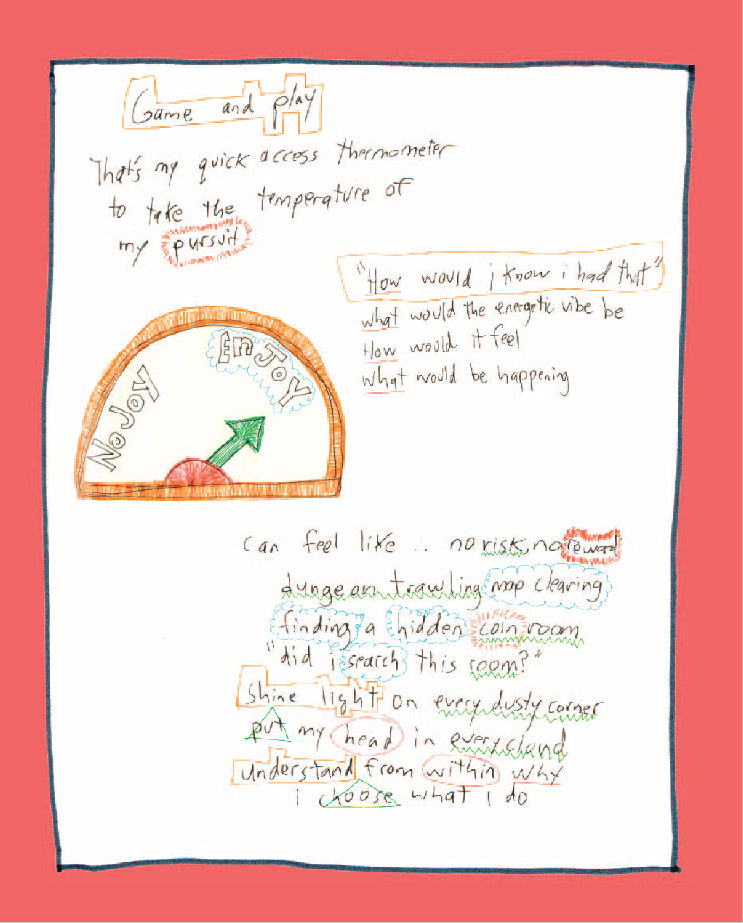 Game and play
That's my quick access thermometer
to take the temperature of
my pursuit
"How would i know i had that"
what would the energetic vibe be
How would it feel
what would be happening
No Joy
EnJoY
can feel like ... no risk, no reward
dungeon trawling map clearing
finding a hidden coin room
"did i search this room?"
Shine light on every dusty corner
put my head in every cloud
understand from within why
i choose what i do